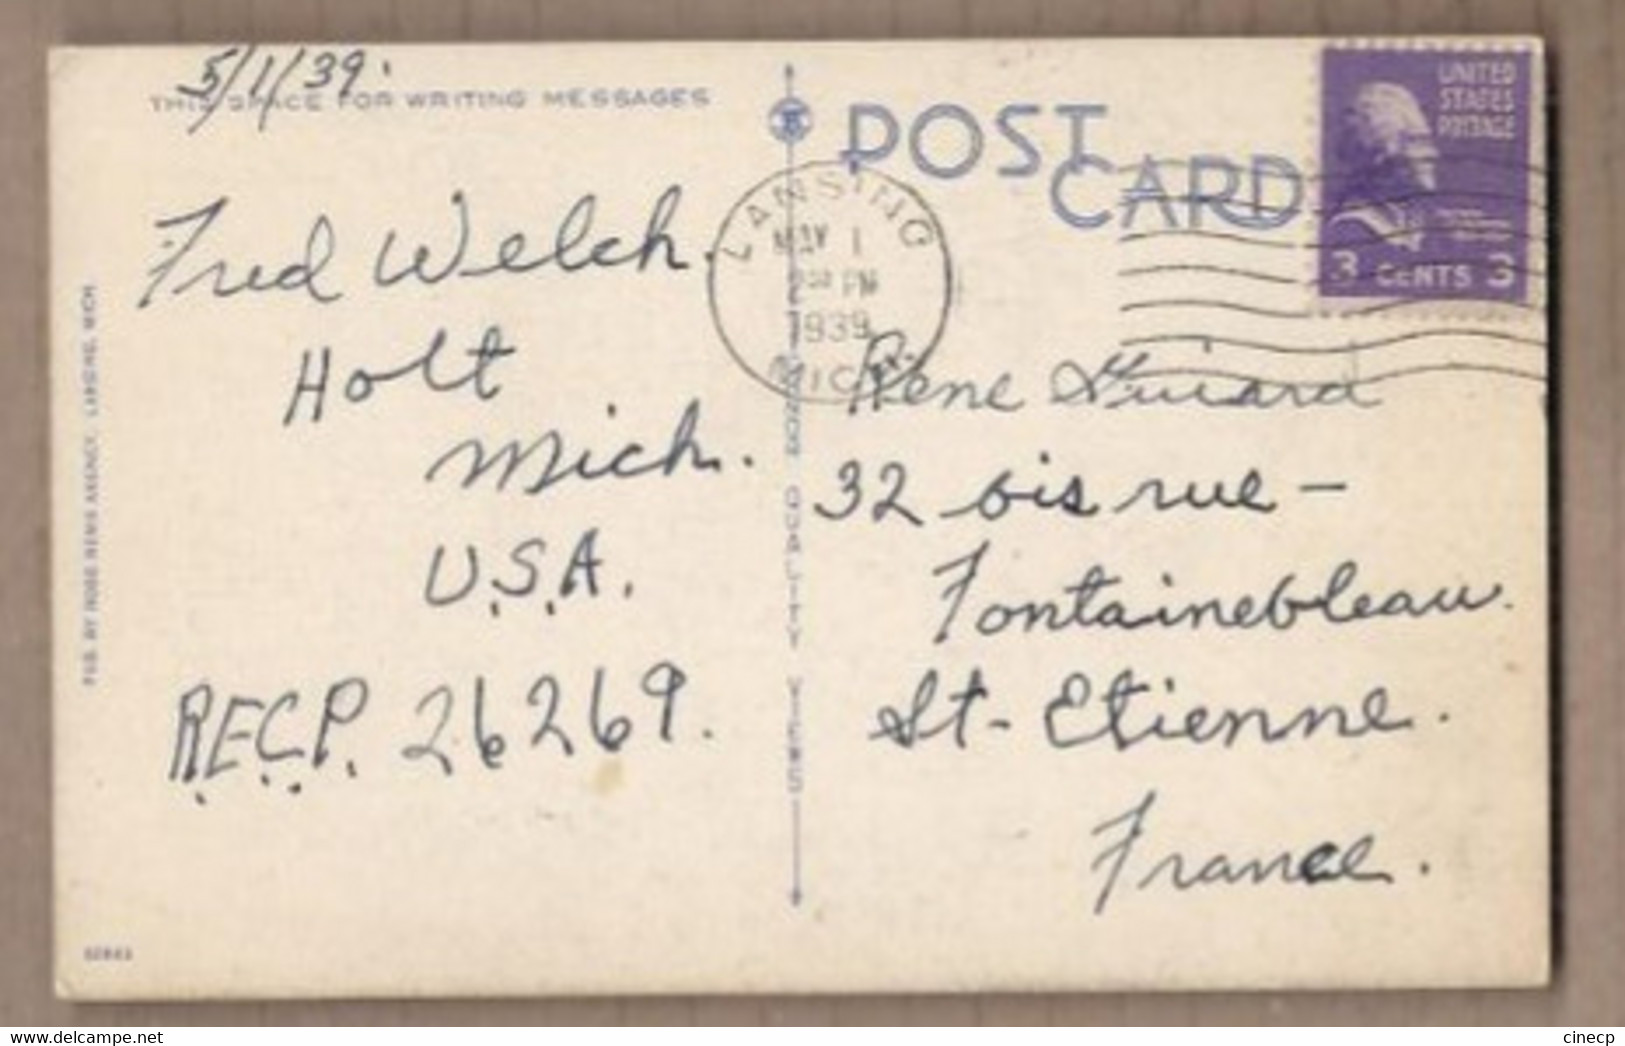 5/1/39.
THIS SPACE FOR WRITING MESSAGES
POST
CARD
UNITED
STATES
POSTAGE
3 CENTS 3
LANSING
MAY 1
PM
1939
MICH.
Fred Welch.
Holt
Mich.
U.S.A.
R.E.C.P. 26269.
Rene
32 bis rue -
Fontainebleau.
St-Etienne.
France.
PUB. BY NEWS AGENCY, LANSING, MICH.
QUALITY VIEWS
cinecp